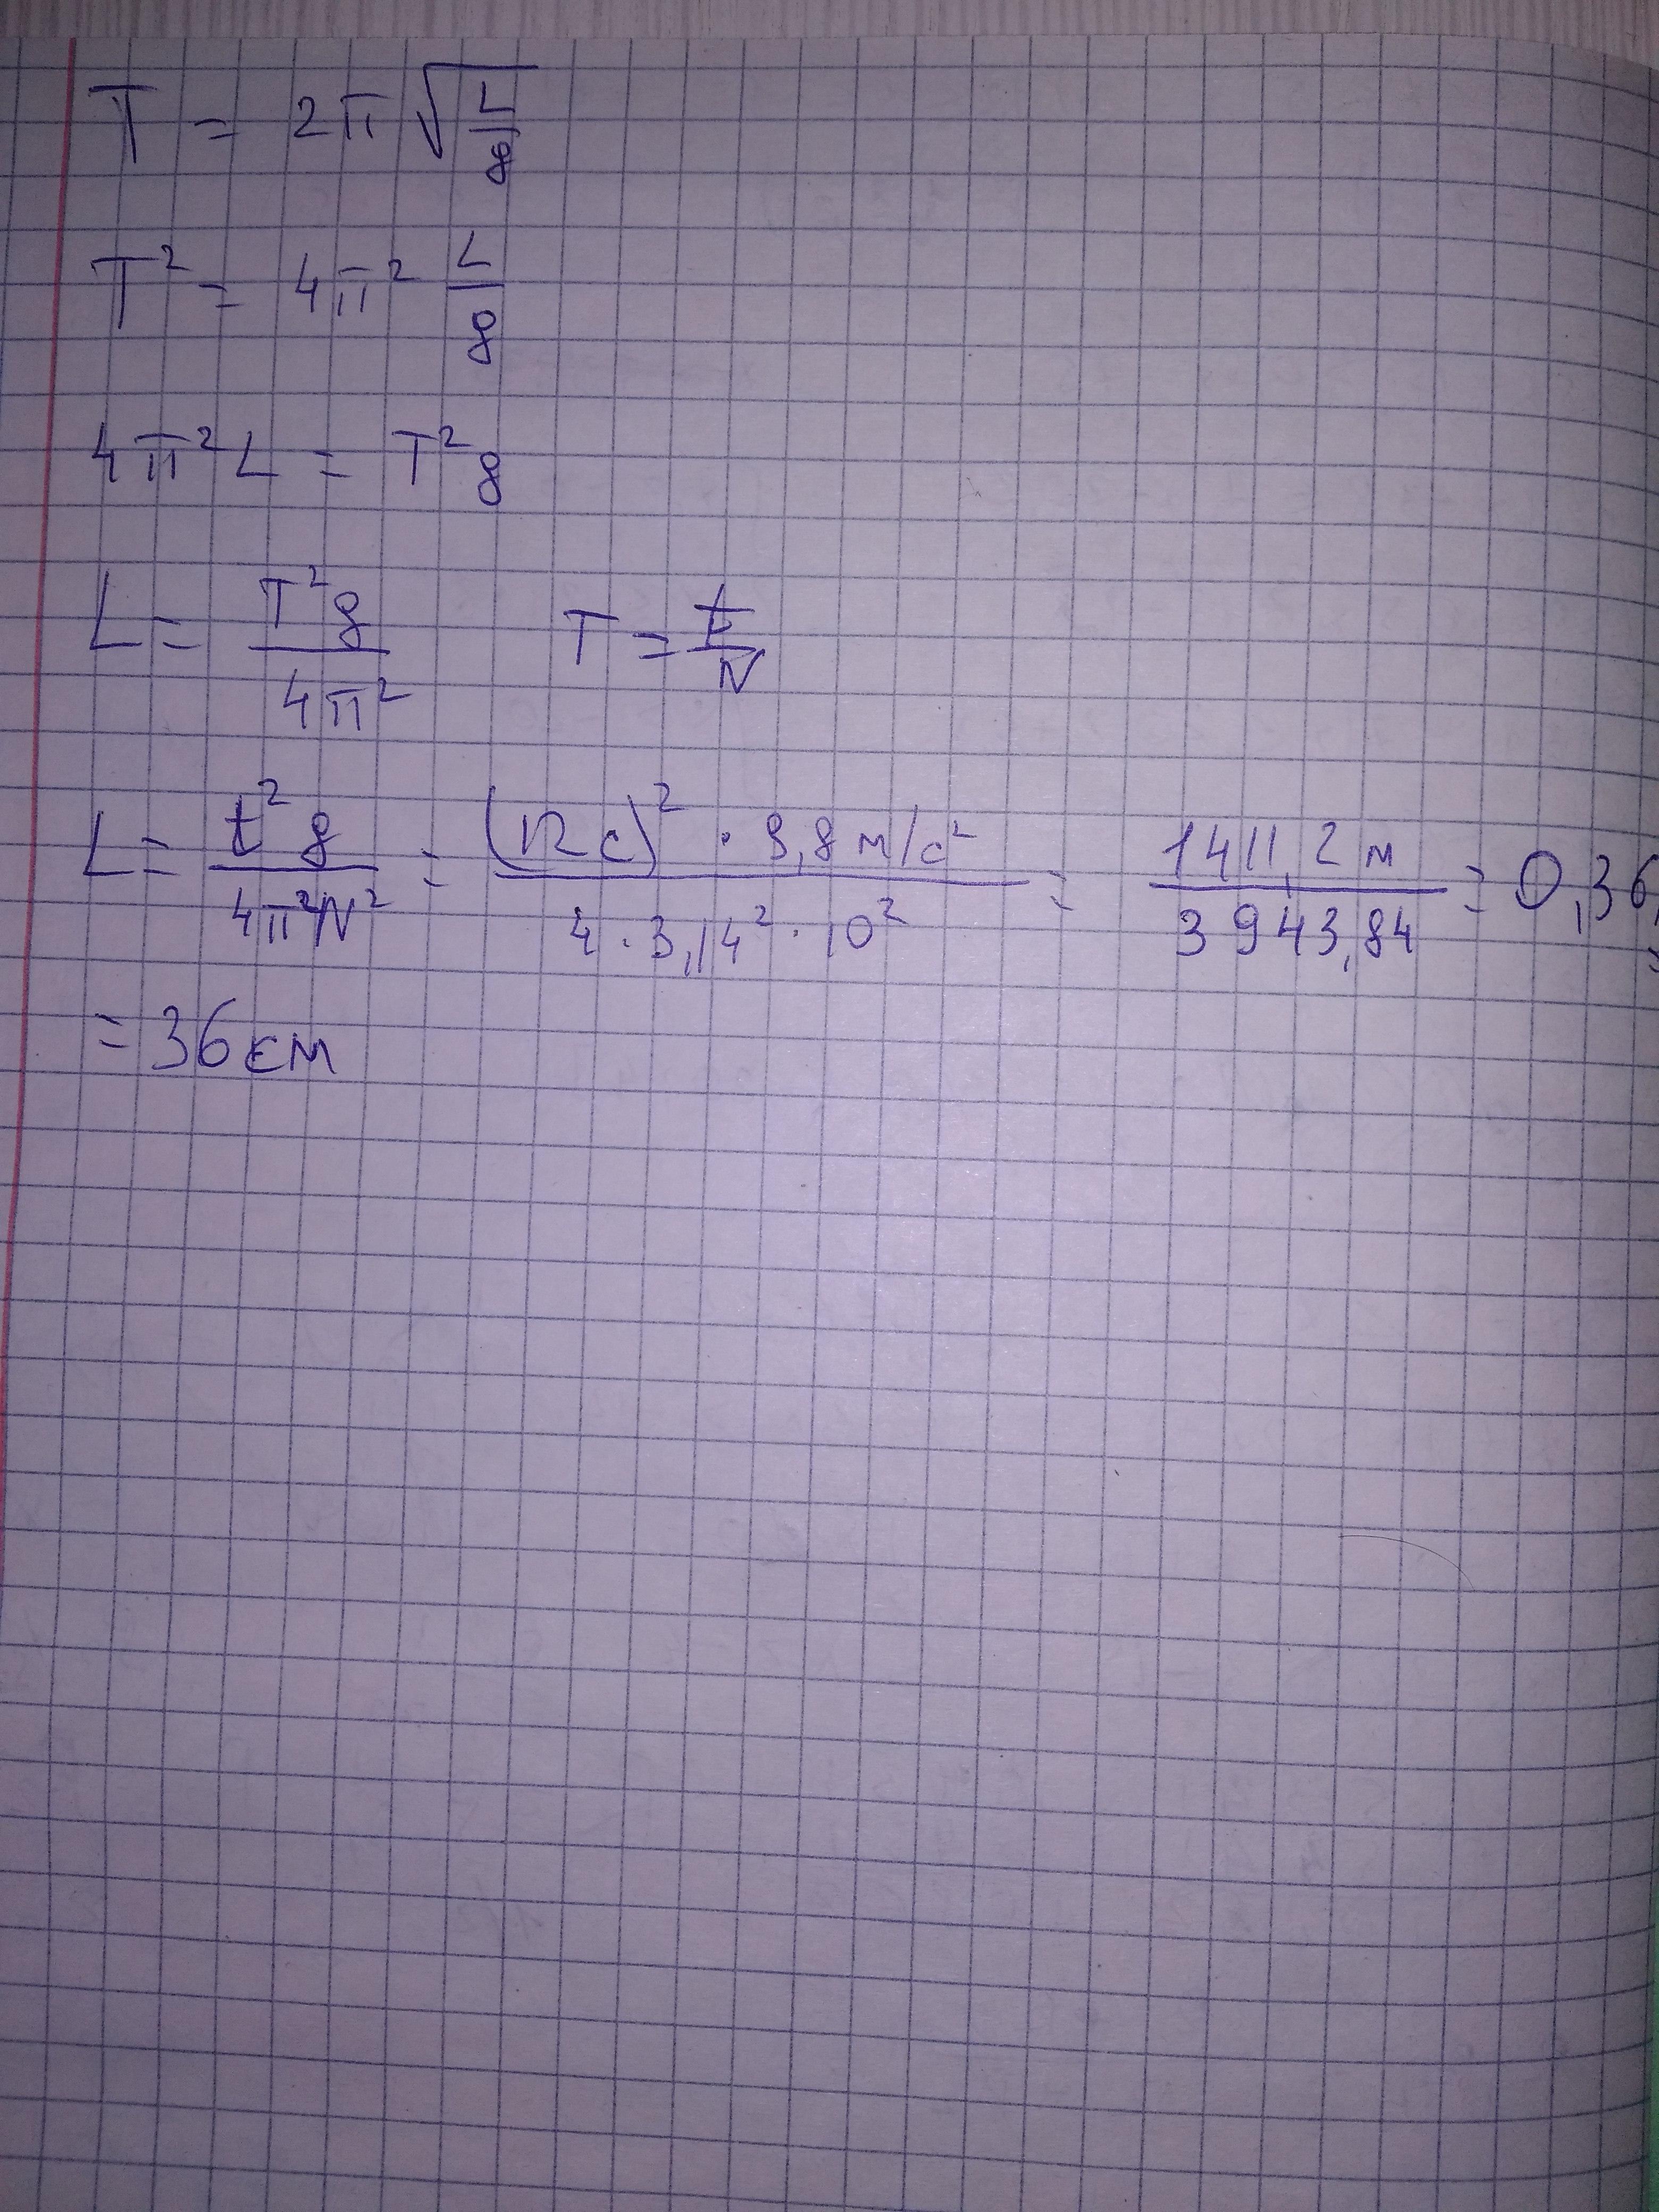 T = 2π√(L/g)
T² = 4π² L/g
4π²L = T²g
L = T²g/4π² T = t/N
L = t²g/4π²N² = (12 с)² · 9,8 м/с²/4 · 3,14² · 10² = 1411,2 м/3943,84 = 0,36
= 36 см